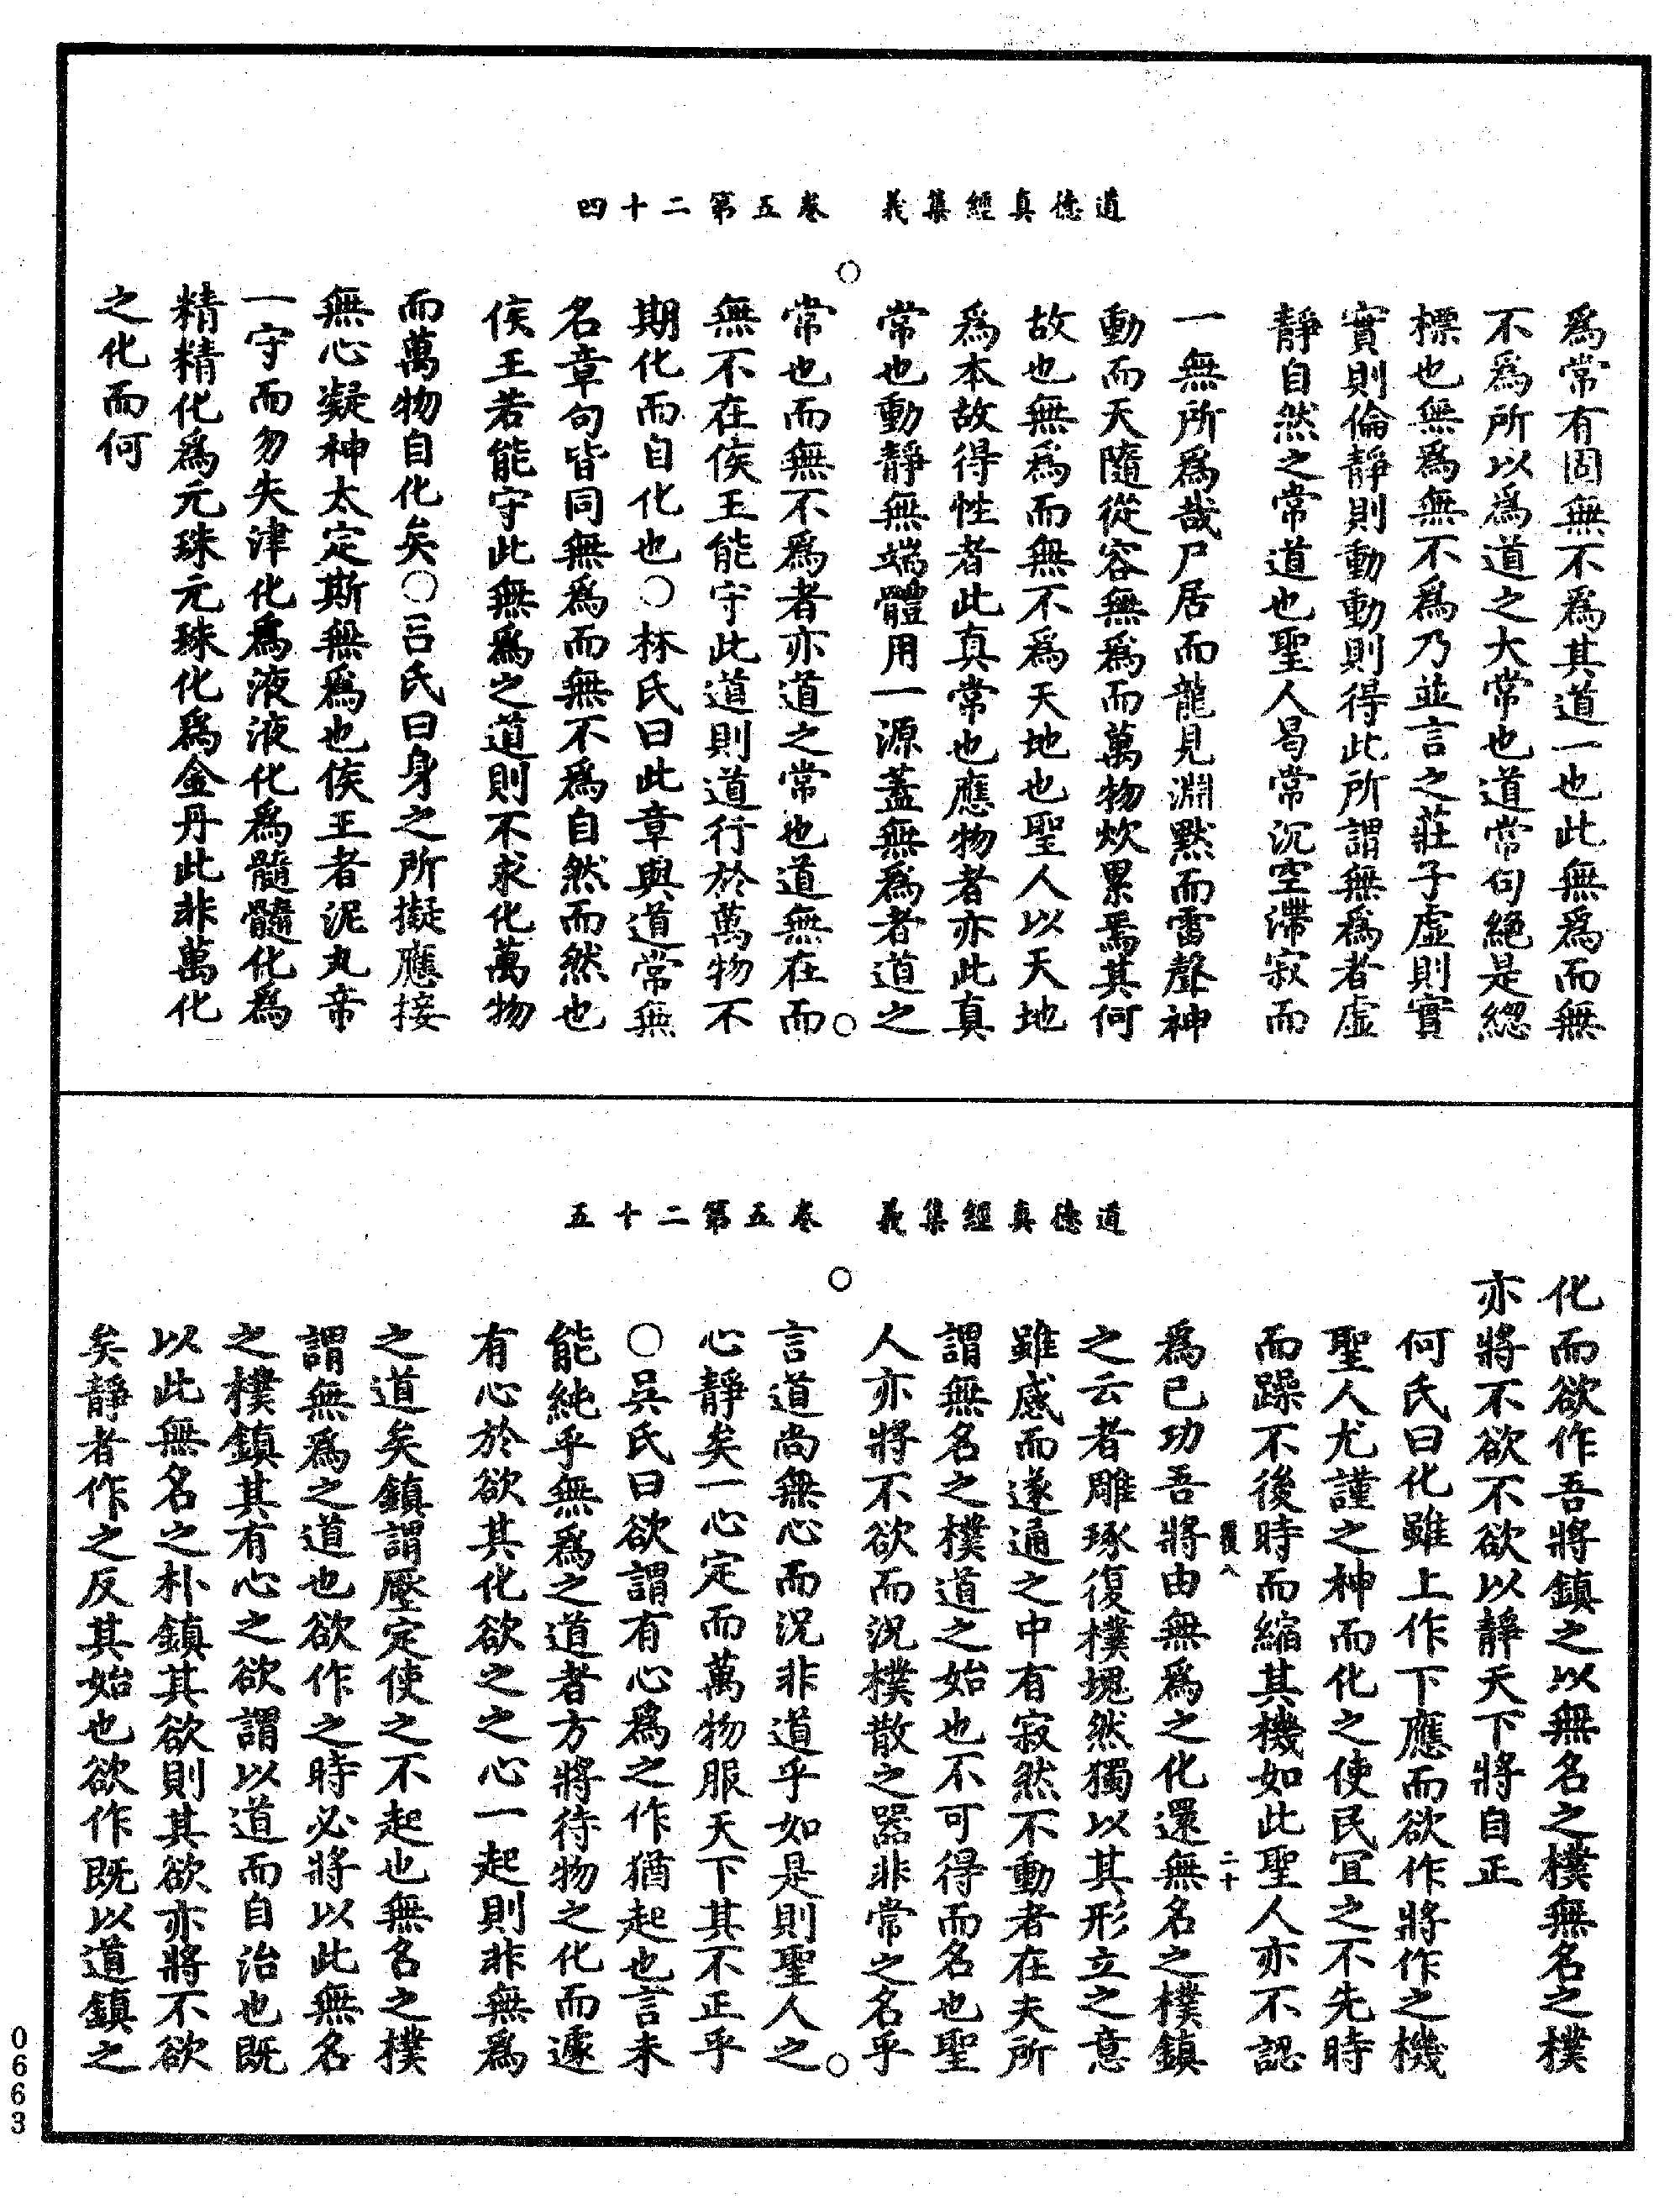 道德真經集義　卷五第二十四
爲常有固無不爲其道一也此無爲而無
不爲所以爲道之大常也道常句絕是緫
標也無爲無不爲乃並言之莊子虛則實
實則倫靜則動動則得此所謂無爲者虛
靜自然之常道也聖人曷常沉空滯寂而
一無所爲哉尸居而龍見淵黙而雷聲神
動而天隨從容無爲而萬物炊累焉其何
故也無爲而無不爲天地也聖人以天地
爲本故得性者此真常也應物者亦此真
常也動靜無端體用一源蓋無爲者道之
常也而無不爲者亦道之常也道無在而
無不在侯王能守此道則道行於萬物不
期化而自化也○林氏曰此章與道常無
名章句皆同無爲而無不爲自然而然也
侯王若能守此無爲之道則不求化萬物
而萬物自化矣○呂氏曰身之所擬應接
無心凝神太定斯無爲也侯王者泥丸帝
一守而勿失津化爲液液化爲髓髓化爲
精精化爲元珠元珠化爲金丹此非萬化
之化而何
道德真經集義　卷五第二十五
化而欲作吾將鎮之以無名之樸無名之樸
亦將不欲不欲以靜天下將自正
何氏曰化雖上作下應而欲作將作之機
聖人尤謹之神而化之使民冝之不先時
而躁不後時而縮其機如此聖人亦不認
二十
爲已功吾將由無爲之化還無名之樸鎮
之云者雕琢復樸塊然獨以其形立之意
雖感而遂通之中有寂然不動者在夫所
謂無名之樸道之始也不可得而名也聖
人亦將不欲而況樸散之器非常之名乎
言道尚無心而況非道乎如是則聖人之
心靜矣一心定而萬物服天下其不正乎
○吳氏曰欲謂有心爲之作猶起也言未
能純乎無爲之道者方將待物之化而遽
有心於欲其化欲之之心一起則非無爲
之道矣鎮謂壓定使之不起也無名之樸
謂無爲之道也欲作之時必將以此無名
之樸鎮其有心之欲謂以道而自治也既
以此無名之朴鎮其欲則其欲亦將不欲
矣靜者作之反其始也欲作既以道鎮之
0663